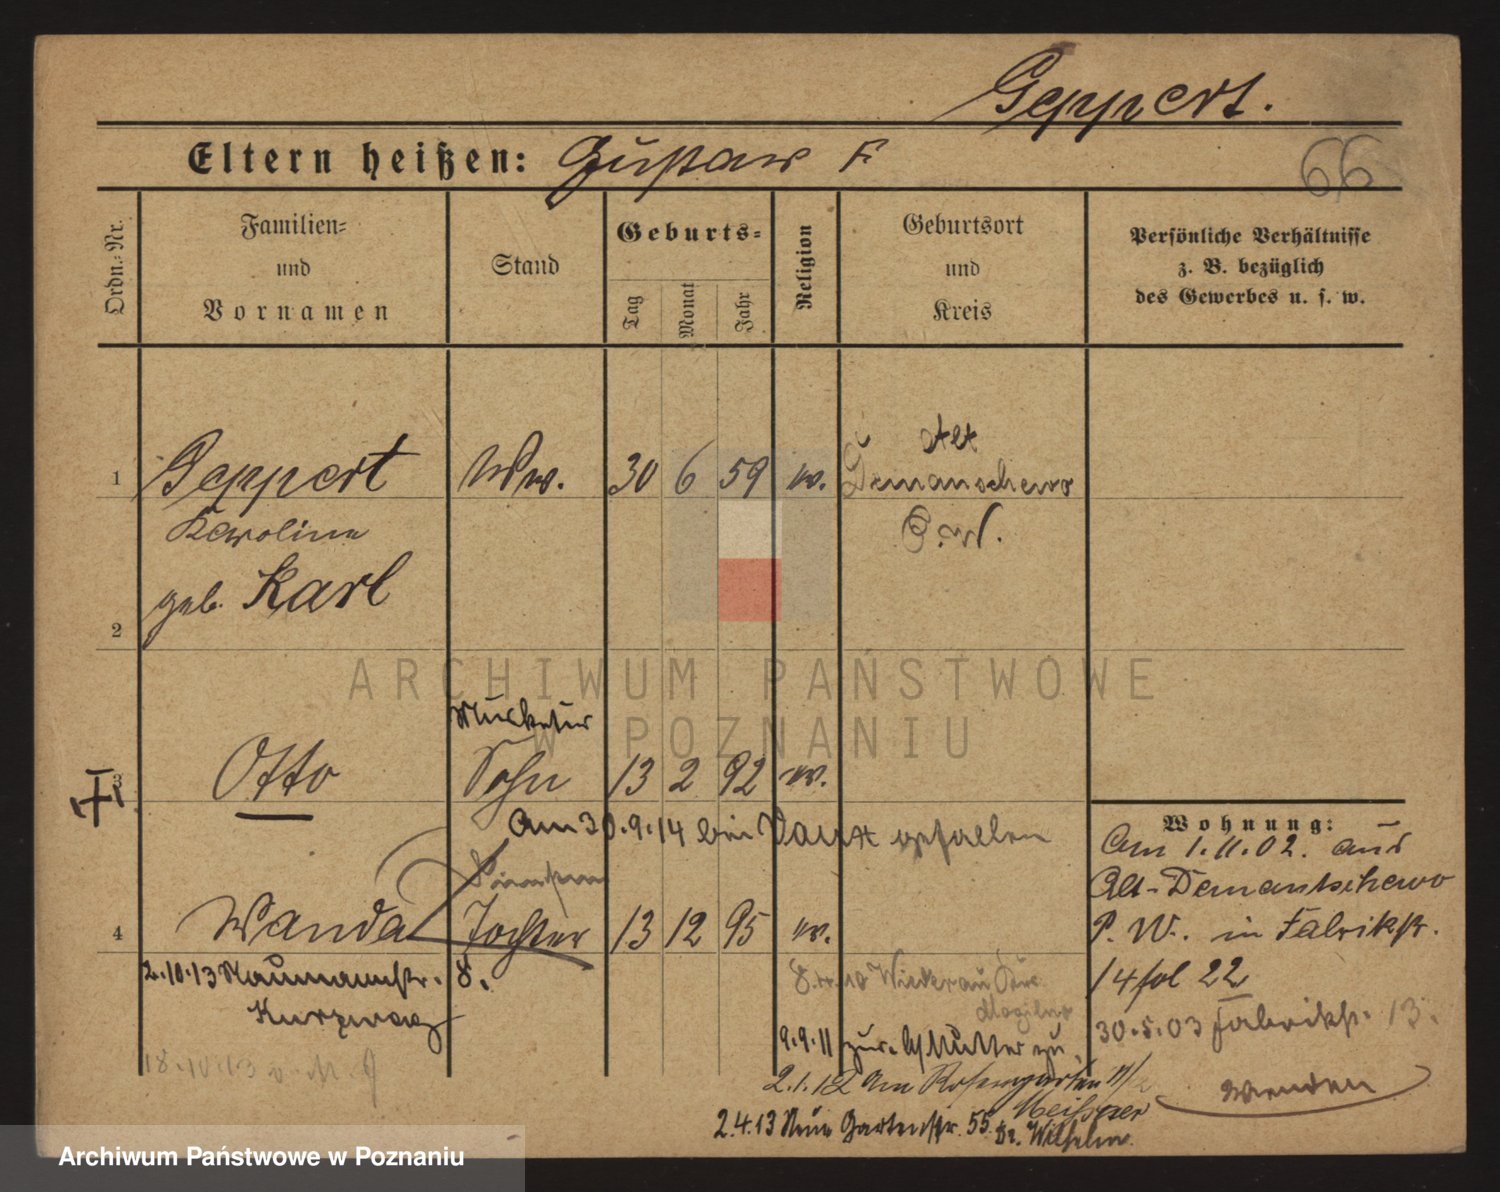 Geppert.
66
Eltern heißen: Gustav F
Ordn.-Nr.
Familien-
und
Vornamen
Stand
Geburts-
Tag
Monat
Jahr
Religion
Geburtsort
und
Kreis
Persönliche Verhältnisse
z. B. bezüglich
des Gewerbes u. s. w.
1 Geppert Ww. 30 6 59 Alt
Demanschewo
Karoline
P.W.
geb. Karl
2
Musketier
3 Otto Sohn 13 2 92
Am 30.9.14 bei Vaux gefallen
4 Wanda Tochter 13 12 95
2.10.13 Naumannstr. 8.
18.10.13
8.4.10 Wiederau Kr.
Mogilno
9.9.11 zur Mutter zu
2.1.12 Am Rosengarten
2.4.13 Neue Gartenstr. 55
Wilhelm
Wohnung:
Am 1.11.02. aus
Alt-Demantschewo
P. W. in Fabrikstr.
14 fol 22
30.5.03 Fabrikstr. 13.
wenden
ARCHIWUM PAŃSTWOWE
W POZNANIU
Archiwum Państwowe w Poznaniu